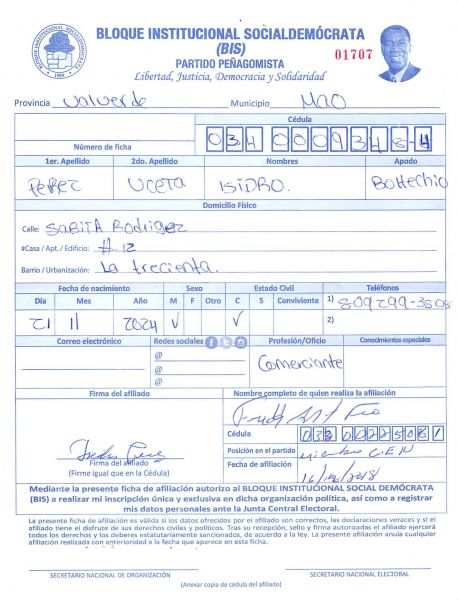 BLOQUE INSTITUCIONAL SOCIALDEMÓCRATA
(BIS)
PARTIDO PEÑAGOMISTA
01707
Libertad, Justicia, Democracia y Solidaridad
BLOQUE INSTITUCIONAL SOCIALDEMÓCRATA
Provincia Valverde Municipio MAO
Cédula
Número de ficha 034 0009348-4
1er. Apellido 2do. Apellido Nombres Apodo
PEREZ UCETA ISIDRO. BOHECHIO
Domicilio Físico
Calle: SARITA Rodriguez
#Casa / Apt. / Edificio: #12
Barrio / Urbanización: La trecienta.
Fecha de nacimiento Sexo Estado Civil Teléfonos
Día Mes Año M F Otro C S Conviviente 1) 809299-3808
21 11 2024 V V 2)
Correo electrónico Redes sociales Profesión/Oficio Conocimientos especiales
@
@
@
Comerciante
Firma del afiliado Nombre completo de quien realiza la afiliación
Cédula
Firma del afiliado
(Firme igual que en la Cédula)
Posición en el partido CEN
Fecha de afiliación
Mediante la presente ficha de afiliación autorizo al BLOQUE INSTITUCIONAL SOCIAL DEMÓCRATA
(BIS) a realizar mi inscripción única y exclusiva en dicha organización política, así como a registrar
mis datos personales ante la Junta Central Electoral.
La presente ficha de afiliación es válida si los datos ofrecidos por el afiliado son correctos, las declaraciones veraces y si el
afiliado tiene el disfrute de sus derechos civiles y políticos. Tras su recepción, sello y firma autorizadas el afiliado ejercerá
todos los derechos y los deberes estatutariamente sancionados, de acuerdo a la ley. La presente afiliación anula cualquier
afiliación realizada con anterioridad a la fecha que aparece en esta ficha.
SECRETARIO NACIONAL DE ORGANIZACIÓN SECRETARIO NACIONAL ELECTORAL
(Anexar copia de cédula del afiliado)